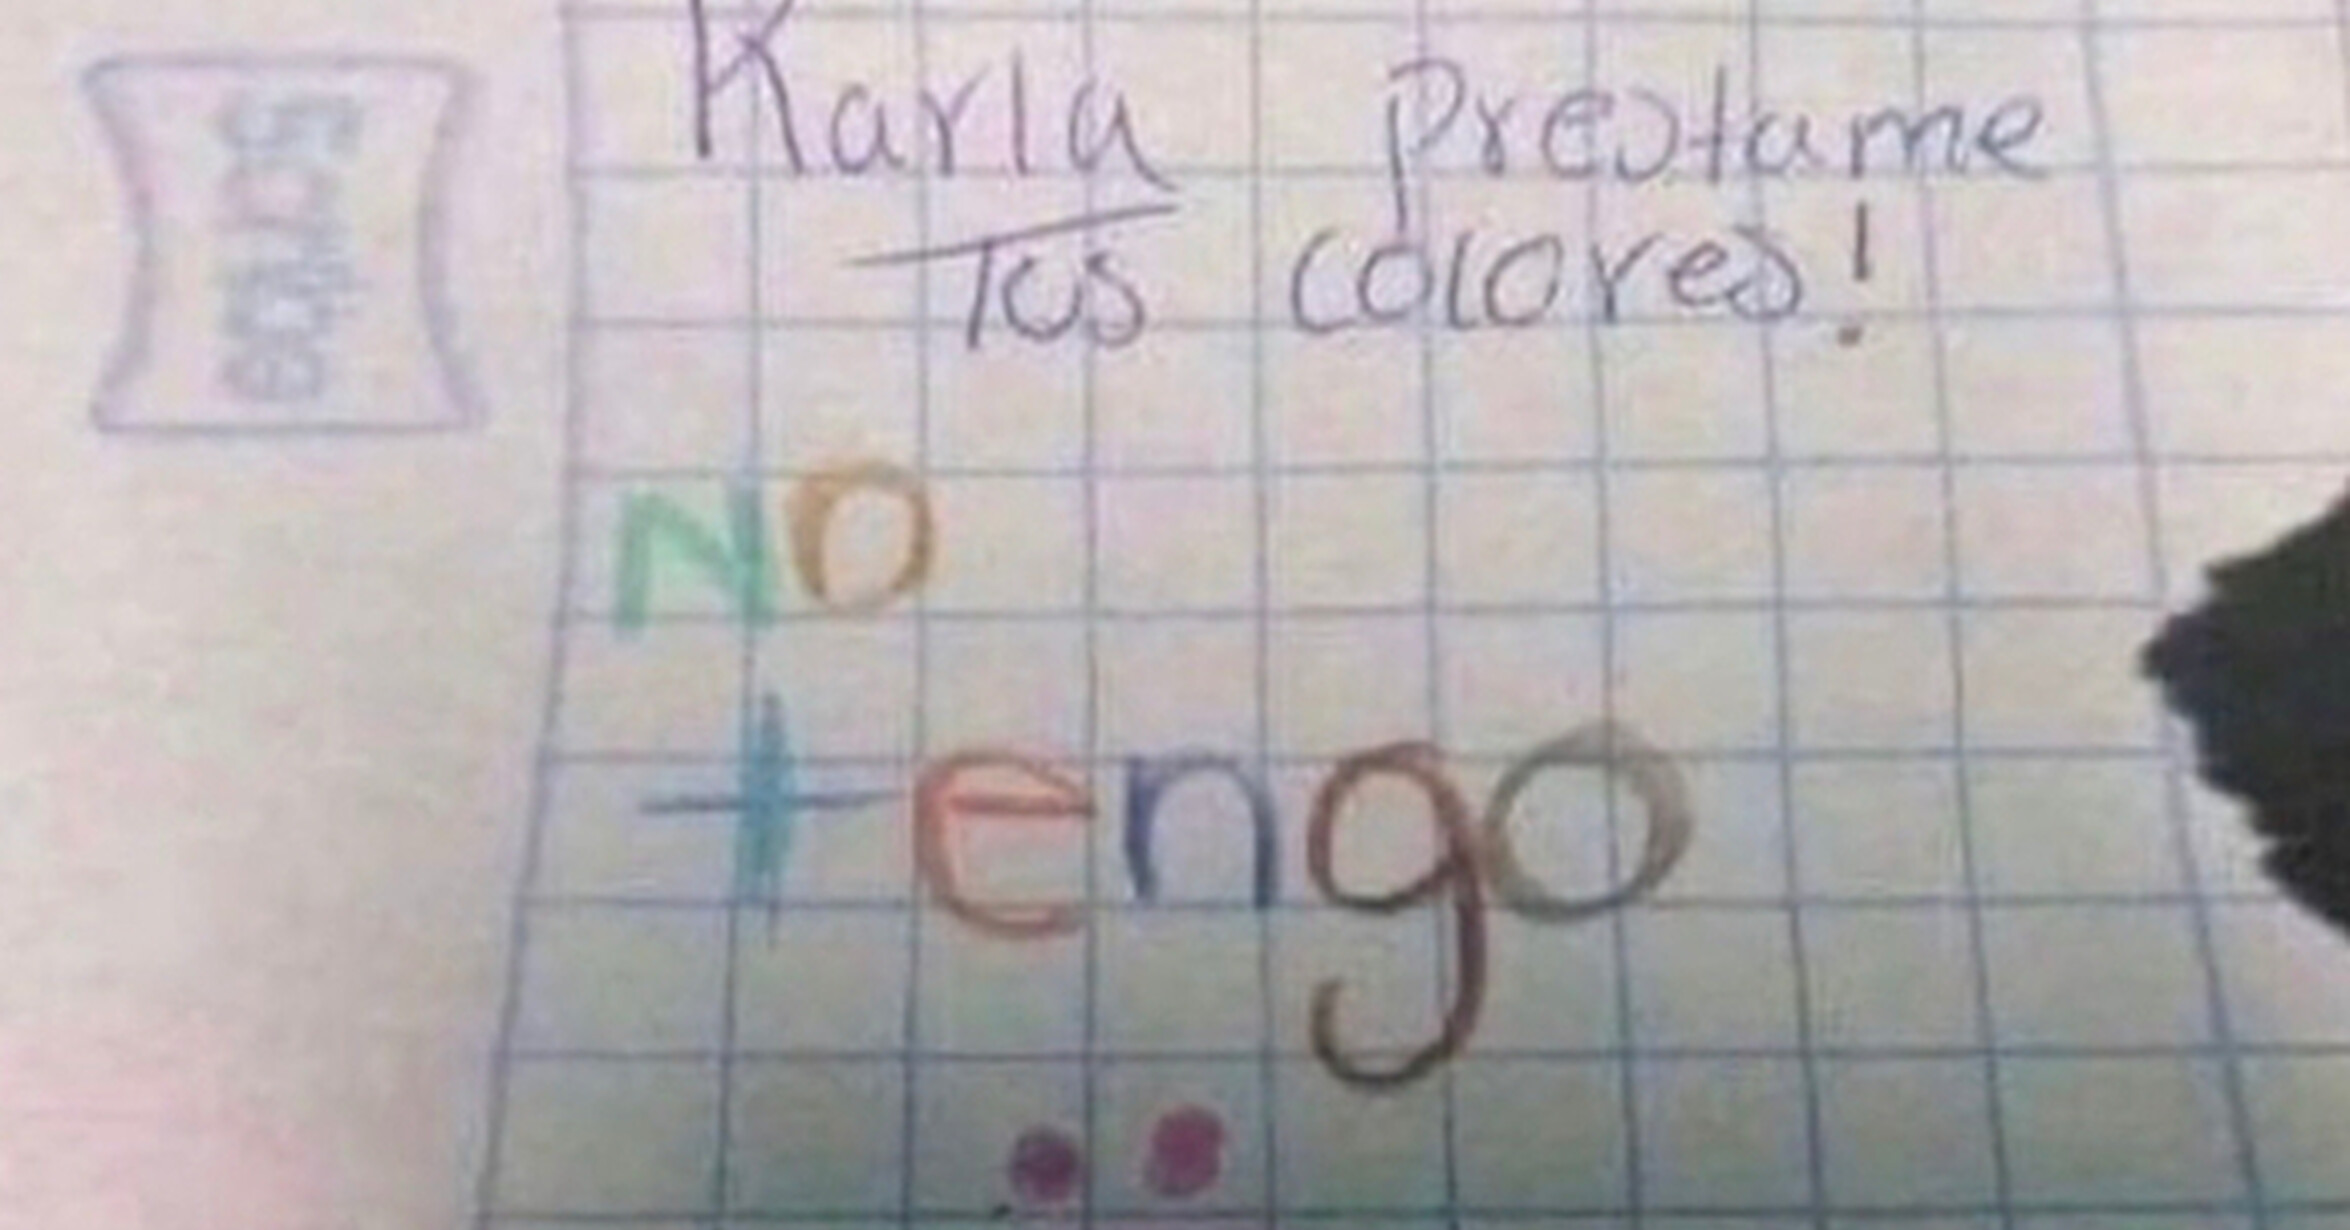 Karla prestame
Tus colores!
NO
tengo